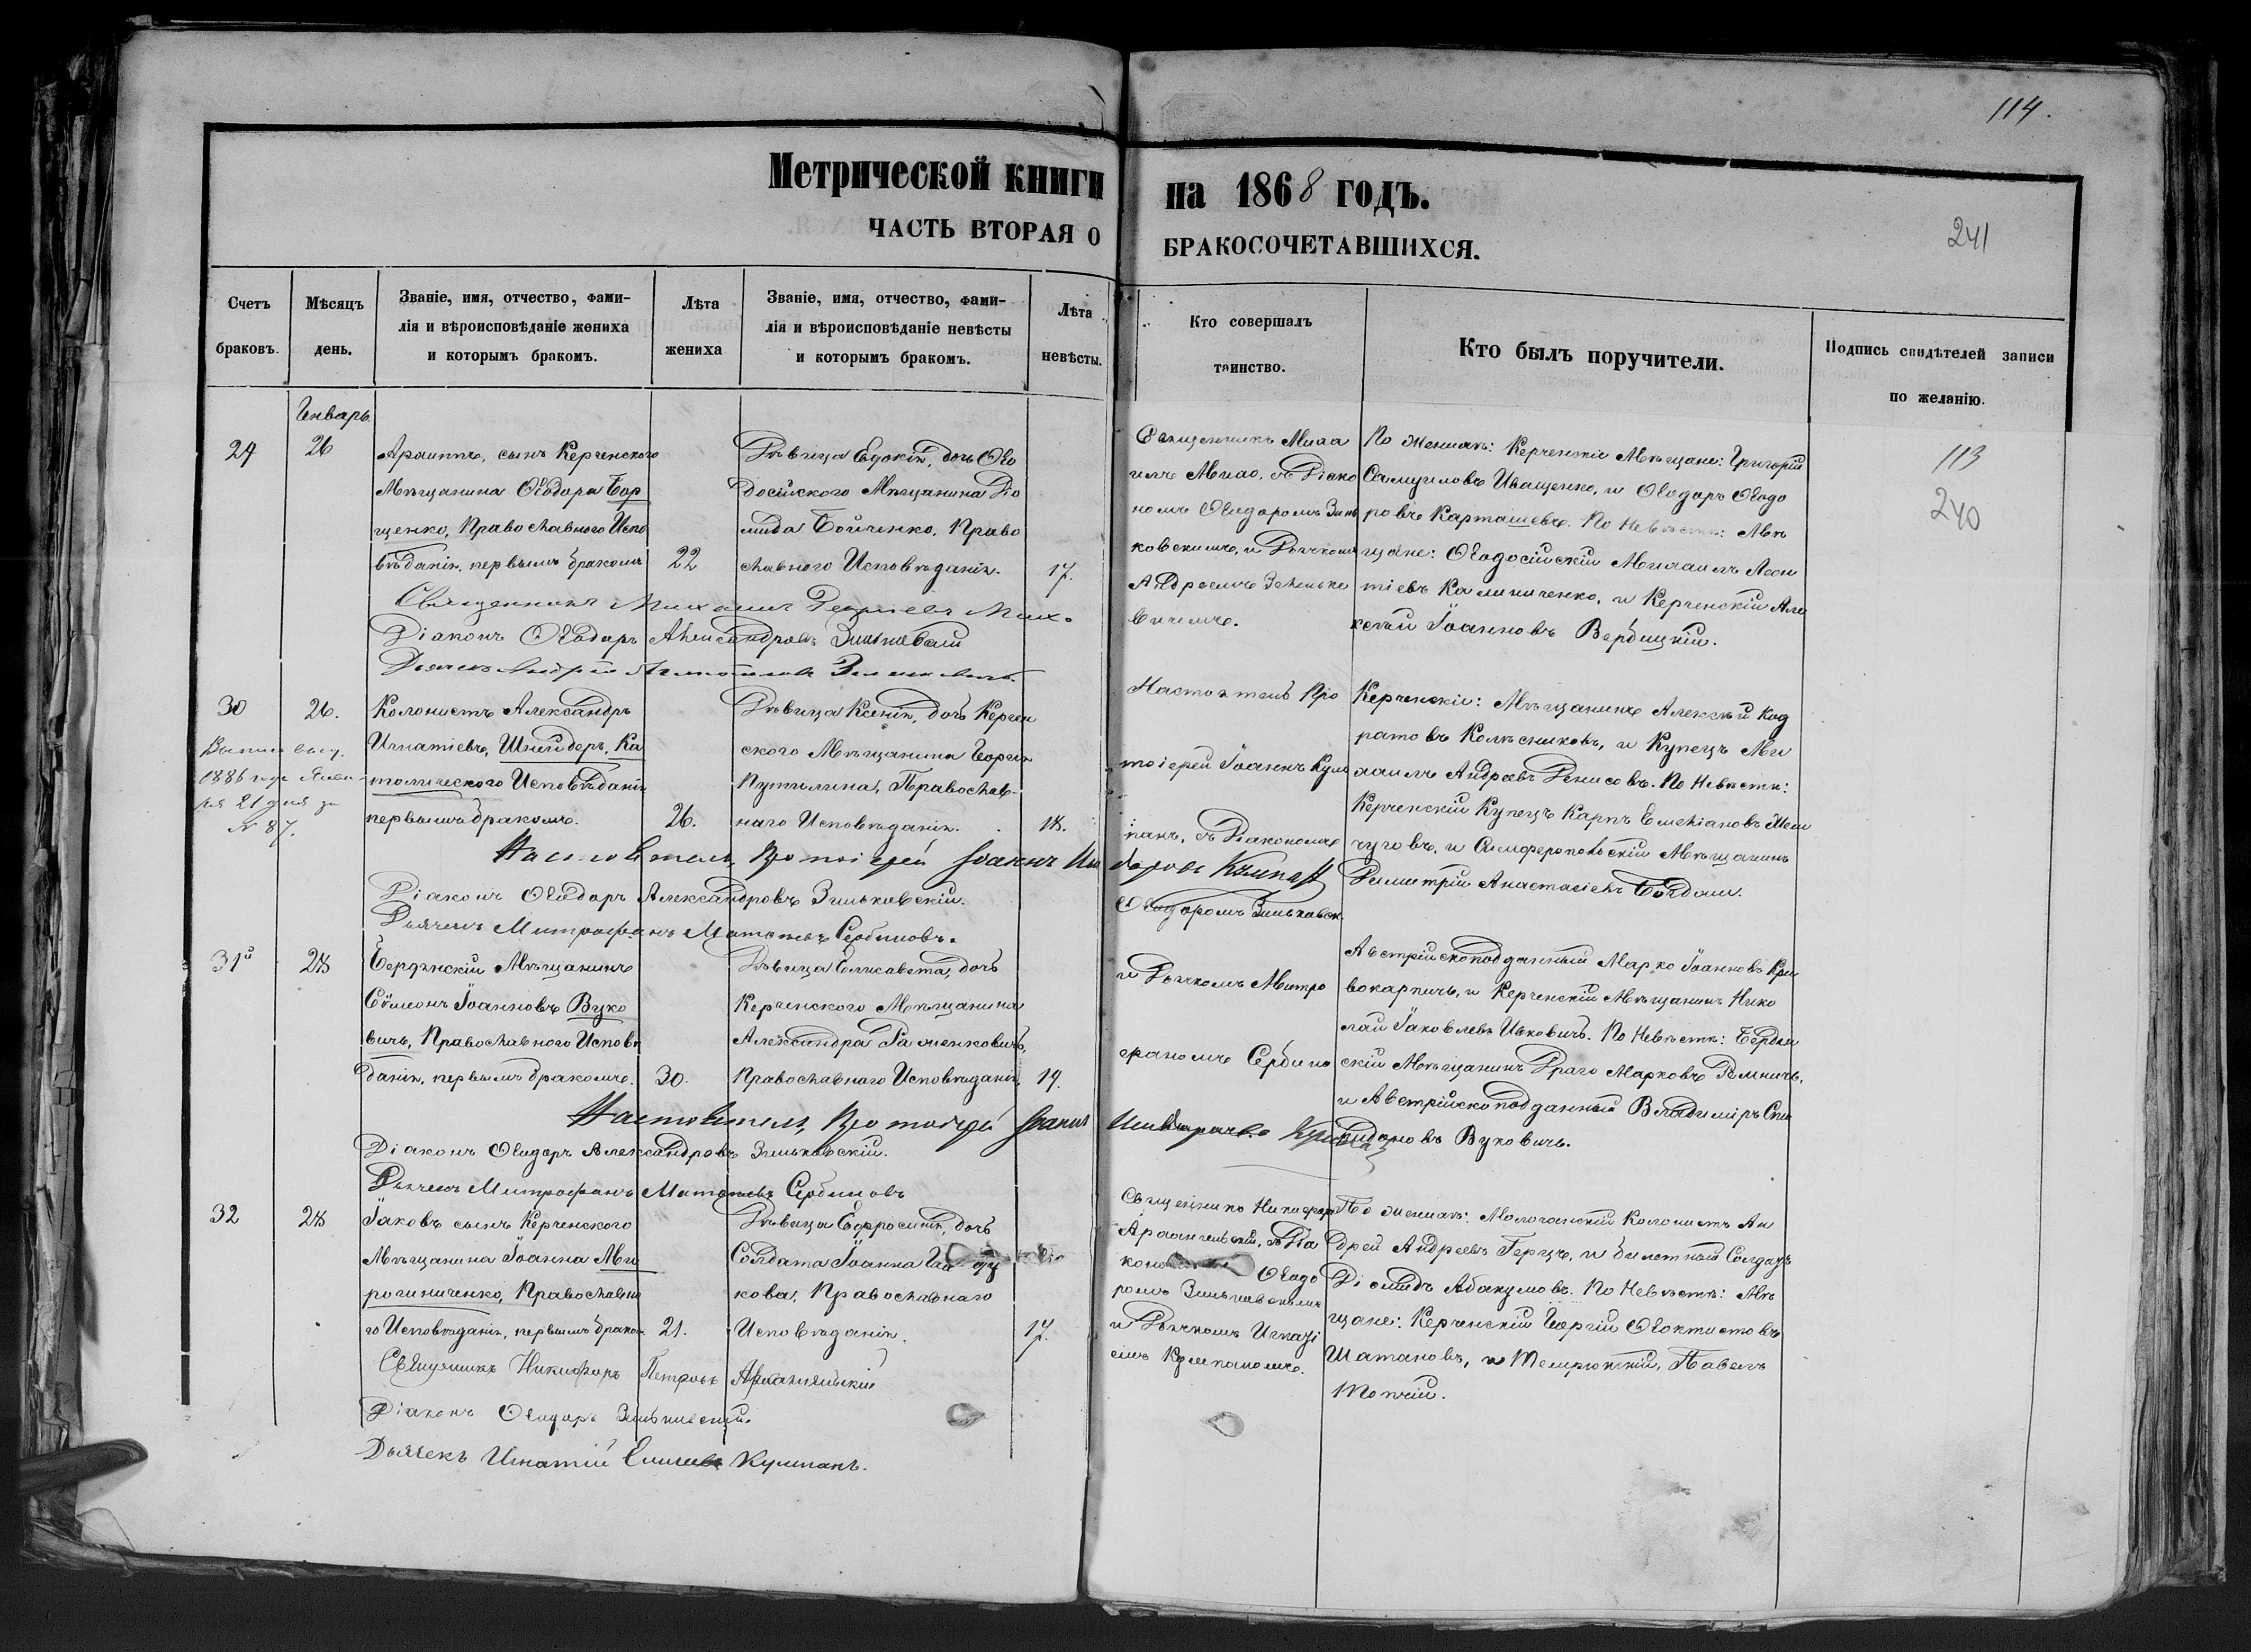 114.
Метрической книги на 1868 годъ.
ЧАСТЬ ВТОРАЯ О БРАКОСОЧЕТАВШИХСЯ.
241
Счетъ браковъ.
Мѣсяцъ день.
Званіе, имя, отчество, фами-
лія и вѣроисповѣданіе жениха
и которымъ бракомъ.
Лѣта жениха
Званіе, имя, отчество, фами-
лія и вѣроисповѣданіе невѣсты
и которымъ бракомъ.
Лѣта невѣсты.
Кто совершалъ
таинство.
Кто былъ поручители.
Подпись свидѣтелей записи
по желанію.
113
240
Январь
29
26
сынъ Керченского
Мѣщанина Ѳеодора Бор
щенко, Православного Испо
вѣданія, первымъ бракомъ
22
Дѣвица Евдокія, дочь Ѳео
досійского Мѣщанина Діо
мида Бойченко, Право
славного Исповѣданія.
17.
Священникъ Миха
илъ Михо, съ Діако
номъ Ѳеодоромъ Зинь
ковскимъ, и Дьячкомъ
Андреемъ Зеленке
вичемъ.
По Женихѣ: Керченскіе Мѣщане: Григорій
Самуиловъ Иващенко, и Ѳеодоръ Ѳеодо
ровъ Карташевъ. По Невѣстѣ: Мѣ
щане: Ѳеодосійскій Михаилъ Леон
тіевъ Калиниченко, и Керченскій Але
ксѣй Іоанновъ Вербицкій.
Священникъ Михаилъ Георгіевъ Михо
Діаконъ Ѳеодоръ Александровъ Зиньковскій
Дьячекъ Андрей
30
26.
Колонистъ Александръ
Игнатіевъ, Шнейдеръ, Ка
толического Исповѣданія
первымъ бракомъ.
26.
Дѣвица Ксенія, дочь Керчен
ского Мѣщанина Георгія
Путилина, Православ-
наго Исповѣданія.
18.
1886 года
21 дня за
N 87.
Настоятель Про
тоіерей Іоаннъ Кум
панъ, съ Діакономъ
Ѳеодоромъ Зиньковск.
Керченскіе: Мѣщанинъ Алексѣй Код
ратовъ Колѣсниковъ, и Купецъ Ми
хаилъ Андреевъ Денисовъ. По Невѣстѣ:
Керченскій Купецъ Карпъ Емеліановъ Меш
чуговъ, и Симферопольскій Мѣщанинъ
Димитрій Анастасіевъ
Настоятель, Протоіерей Іоаннъ Кумпанъ
Діаконъ Ѳеодоръ Александровъ Зиньковскій.
Дьячекъ Митрофанъ Матѳеевъ Сербиновъ.
31й
28
Бердянскій Мѣщанинъ
Сѵмеонъ Іоанновъ Вуко
вичъ, Православного Исповѣ
данія, первымъ бракомъ.
30.
Дѣвица Елисавета, дочь
Керченского Мѣщанина
Александра Раменковичъ,
Православнаго Исповѣданія,
19.
и Дьячкомъ Митро
фаномъ Сербино
Австрійскоподданный Марко Іоанновъ Кри
вокапичъ, и Керченскій Мѣщанинъ Нико
лай Іаковлевъ Ивковичъ. По Невѣстѣ: Бердян
скій Мѣщанинъ Драго Марковъ
и Австрійскоподданный Владиміръ Спи
ридоновъ Вуковичъ.
Настоятель, Протоіерей Іоаннъ Кумпанъ
Діаконъ Ѳеодоръ Александровъ Зиньковскій.
Дьячекъ Митрофанъ Матѳеевъ Сербиновъ
32
28
Іаковъ сынъ Керченского
Мѣщанина Іоанна Ми
рогиниченко, Православна
го Исповѣданія, первымъ браком
21.
Дѣвица Евфросинія, дочь
Солдата Іоанна
кова, Православнаго
Исповѣданія.
17.
Священникъ Никифоръ
Архангельскій, съ Діа
кономъ Ѳеодо
ромъ Зиньковскимъ
и Дьячкомъ Игнаті
емъ Кумпаномъ.
По Женихѣ: Молочанскій Колонистъ Ан
дрей Андреевъ Герцъ, и билетный Солдатъ
Діомидъ Абакумовъ. По Невѣстѣ: Мѣ
щане: Керченскій Георгій Ѳеоктистовъ
Шатановъ, и Темрюкскій, Павелъ
Топчій.
Священникъ Никифоръ Петровъ Архангельскій
Діаконъ Ѳеодоръ Зиньковскій.
Дьячекъ Игнатій Кумпанъ.